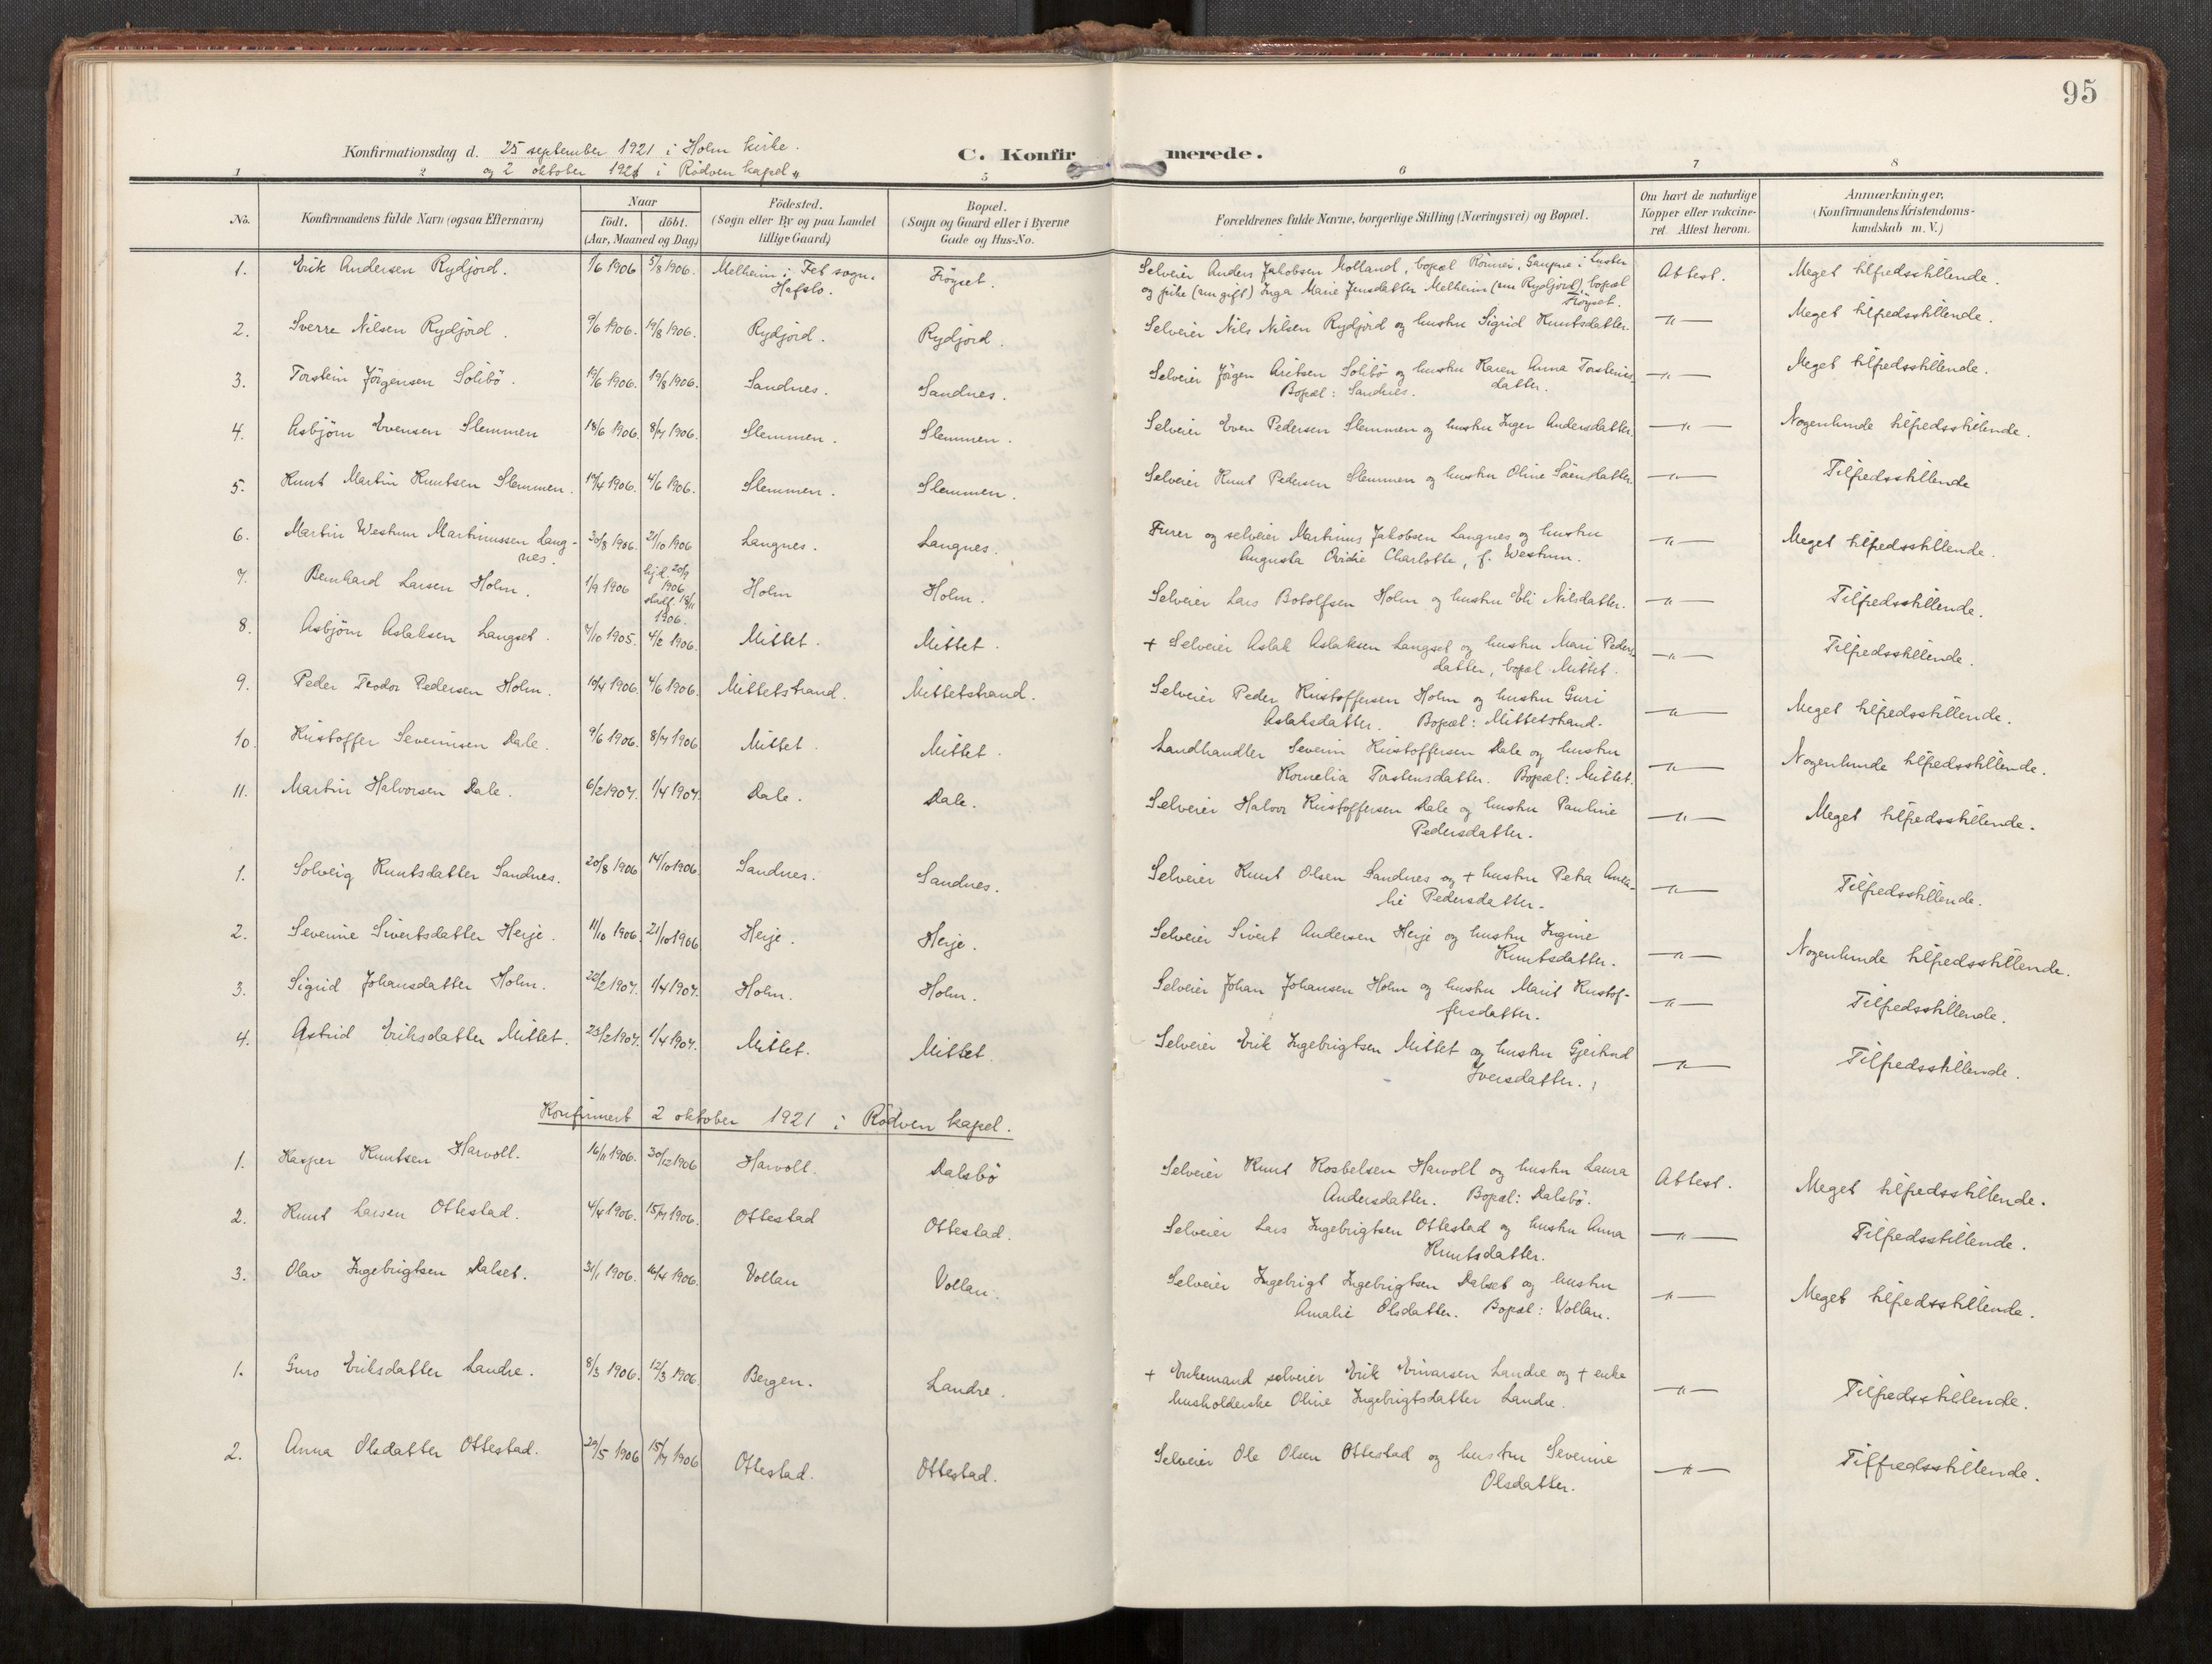 95
Konfirmationsdag d. 25 september 1921 i Holm kirke.
og 2 oktober 1921 i Rödven kapel
C. Konfirmerede.
1 2 5 6 7 8
No. Konfirmandens fulde Navn (ogsaa Efternavn) Naar födt. döbt. (Aar, Maaned og Dag) Födested. (Sogn eller By og paa Landet tillige Gaard) Bopæl. (Sogn og Gaard eller i Byerne Gade og Hus-No. Forældrenes fulde Navne, borgerlige Stilling (Næringsvei) og Bopæl. Om havt de naturlige Kopper eller vakcineret. Attest herom. Anmærkninger. (Konfirmandens Kristendomskundskab m. V.)
1. Erik Andersen Rydjord. 1/6 1906 5/8 1906. Melheim i Fet sogn. Hafslo. Fröyset. Selveier Anders Jakobsen Molland, bopæl Rönnei, Gaupne i Luster
og pike (nu gift) Inga Marie Jensdatter Melheim (nu Rydjord), bopæl Fröyset. Attest. Meget tilfredsstillende.
2. Sverre Nilsen Rydjord. 9/6 1906. 19/8 1906. Rydjord. Rydjord. Selveier Nils Nilsen Rydjord og hustru Sigrid Knutsdatter. -"- Meget tilfredsstillende.
3. Torstein Jörgensen Solibö. 19/6 1906. 19/8 1906. Sandnes. Sandnes. Selveier Jörgen Aritsen Solibö og hustru Karen Anna Torsteins
datter. Bopæl: Sandnes. -"- Meget tilfredsstillende.
4. Asbjörn Evensen Slemmen 18/6 1906. 8/7 1906. Slemmen. Slemmen. Selveier Even Pedersen Slemmen og hustru Inger Andersdatter. -"- Nogenlunde tilfredsstillende.
5. Knut Martin Knutsen Slemmen. 17/4 1906. 4/6 1906. Slemmen. Slemmen. Selveier Knut Pedersen Slemmen og hustru Oline Sörensdatter. -"- Tilfredsstillende
6. Martin Westum Martinussen Langnes. 30/8 1906. 21/10 1906 Langnes. Langnes. Furer og selveier Martinus Jakobsen Langnes og hustru
Augusta Ovidie Charlotte, f. Westum. -"- Meget tilfredsstillende.
7. Bernhard Larsen Holm. 1/9 1906 hjd. 20/9 1906. stadf. 18/11 1906. Holm Holm. Selveier Lars Botolfsen Holm og hustru Eli Nilsdatter. -"- Tilfredsstillende.
8. Asbjörn Aslaksen Langset. 7/10 1905. 4/2 1906. Mittet. Mittet. + Selveier Aslak Aslaksen Langset og hustru Mari Peders
datter, bopæl Mittet. -"- Tilfredsstillende.
9. Peder Teodor Pedersen Holm. 10/4 1906. 4/6 1906. Mittetstrand. Mittetstrand. Selveier Peder Kristoffersen Holm og hustru Guri
Aslaksdatter. Bopæl: Mittetstrand. -"- Meget tilfredsstillende.
10. Kristoffer Severinsen Dale. 9/6 1906. 8/7 1906. Mittet. Mittet. Landhandler Severin Kristoffersen Dale og hustru
Kornelia Torstensdatter. Bopæl: Mittet. -"- Nogenlunde tilfredsstillende.
11. Martin Halvorsen Dale. 6/2 1907. 1/4 1907. Dale. Dale. Selveier Halvor Kristoffersen Dale og hustru Pauline
Pedersdatter. -"- Meget tilfredsstillende.
1. Solveig Knutsdatter Sandnes. 20/8 1906 14/10 1906. Sandnes. Sandnes. Selveier Knut Olsen Sandnes og + hustru Petra Ama-
lie Pedersdatter. -"- Tilfredsstillende.
2. Severine Sivertsdatter Herje. 11/10 1906. 21/10 1906 Herje. Herje. Selveier Sivert Andersen Herje og hustru Ingine
Knutsdatter. -"- Nogenlunde tilfredsstillende.
3. Sigrid Johansdatter Holm. 22/2 1907. 1/4 1907. Holm. Holm. Selveier Johan Johansen Holm og hustru Marit Kristof-
fersdatter. -"- Tilfredsstillende.
4. Astrid Eriksdatter Mittet. 23/2 1907. 1/4 1907. Mittet. Mittet. Selveier Erik Ingebrigtsen Mittet og hustru Gjertrud
Iversdatter. -"- Tilfredsstillende.
Konfirmert 2 oktober 1921 i Rödven kapel.
1. Kasper Knutsen Harvoll. 16/11 1906. 30/12 1906 Harvoll. Dalsbö Selveier Knut Rosbelsen Harvoll og hustru Laura
Andersdatter. Bopæl: Dalsbö. Attest. Meget tilfredsstillende.
2. Knut Larsen Ottestad. 4/4 1906. 15/7 1906. Ottestad Ottestad. Selveier Lars Ingebrigtsen Ottestad og hustru Anna
Knutsdatter. -"- Tilfredsstillende.
3. Olav Ingebrigtsen Dalset. 31/1 1906. 16/4 1906. Vollan Vollan. Selveier Ingebrigt Ingebrigtsen Dalset og hustru
Amalie Olsdatter. Bopæl: Vollan. -"- Meget tilfredsstillende.
1. Guro Eriksdatter Landre. 8/3 1906. 12/3 1906. Bergen. Landre. + Enkemand selveier Erik Eivarsen Landre og + enke
husholderske Oline Ingebrigtsdatter Landre. -"- Tilfredsstillende.
2. Anna Olsdatter Ottestad. 29/5 1906 15/7 1906 Ottestad. Ottestad. Selveier Ole Olsen Ottestad og hustru Severine
Olsdatter. -"- Tilffredsstillende.